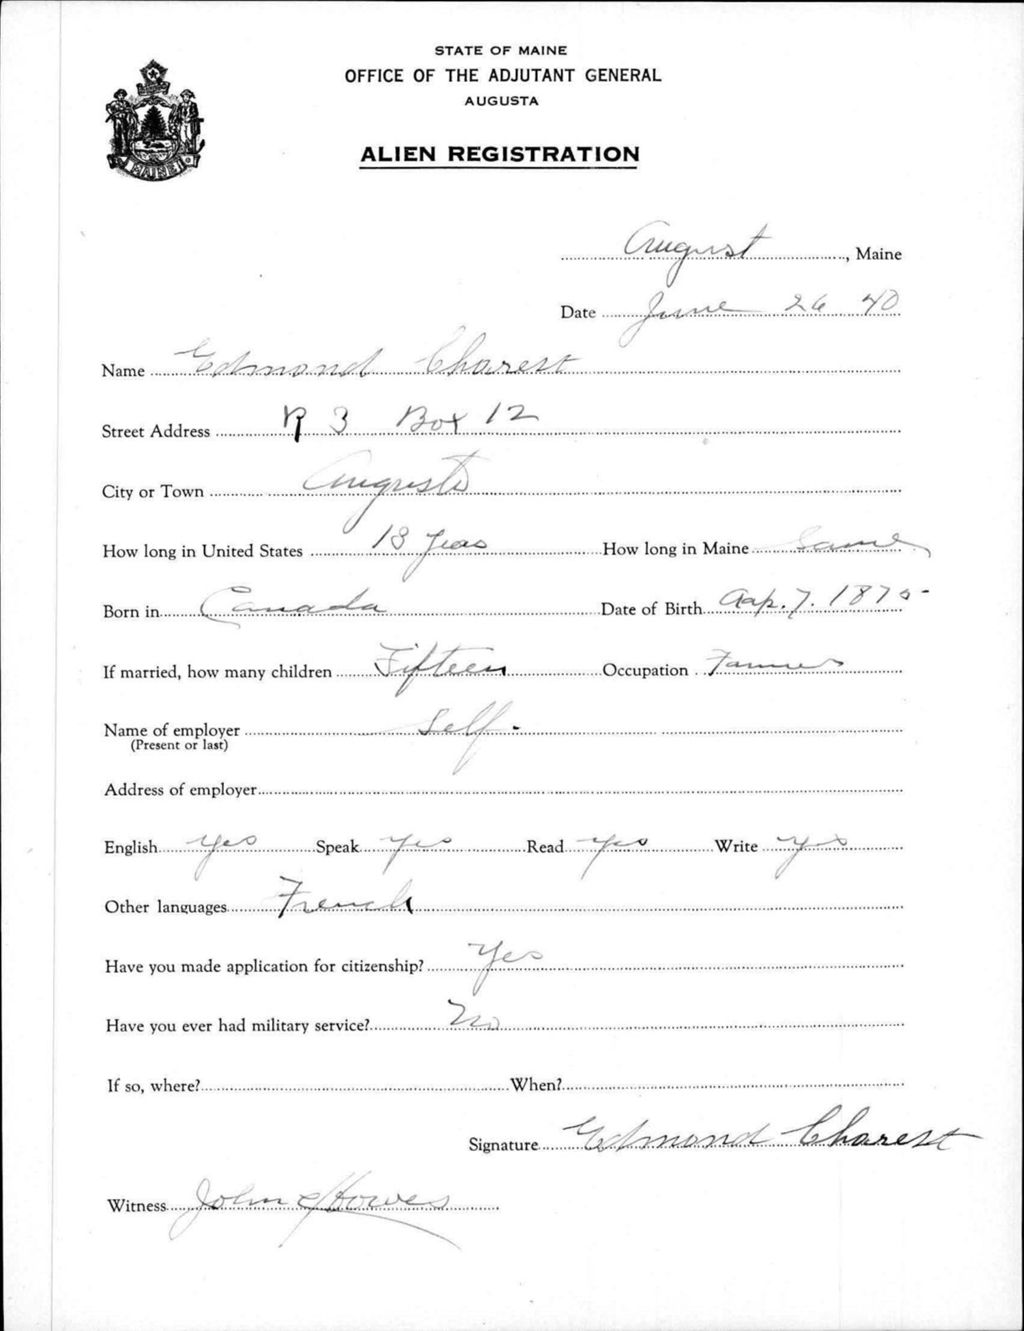 STATE OF MAINE
OFFICE OF THE ADJUTANT GENERAL
AUGUSTA
ALIEN REGISTRATION
MAINE
August, Maine
Date June 26 40
Name Edmond Charest
Street Address R 3 Box 12
City or Town Augusta
How long in United States 18 years How long in Maine Same
Born in Canada Date of Birth Aap. 7. 1875
If married, how many children Fifteen Occupation Farmer
Name of employer Self -
(Present or last)
Address of employer
English yes Speak yes Read yes Write yes
Other languages French
Have you made application for citizenship? Yes
Have you ever had military service? No
If so, where? When?
Signature Edmond Charest
Witness John E Howes